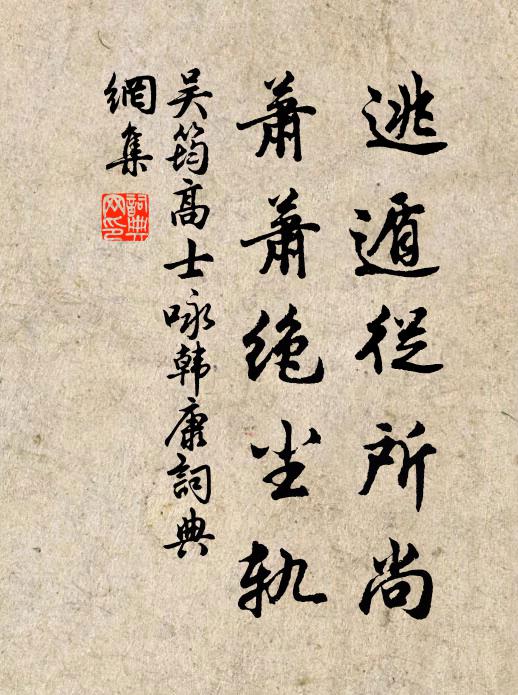 逃遁从所尚
萧萧绝尘轨
吴筠高士咏韩康词典
网集
词典
网印